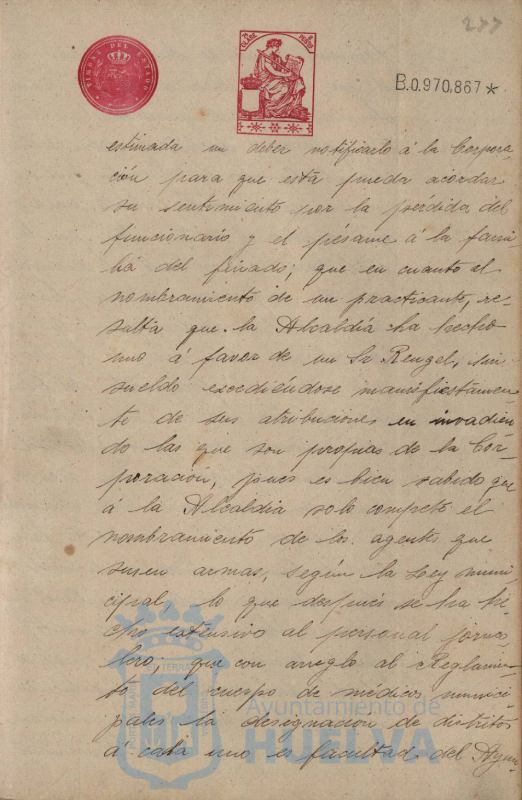 277
TIMBRE DEL ESTADO
CLASE
B.0.970,867*
estimada un deber notificarlo á la Corpora-
ción para que esta pueda acordar
su sentimiento por la perdida del
funcionario y el pésame a la fami-
lia del finado; que en cuanto al
nombramiento de un practicante, re-
sulta que la Alcaldía ha hecho
uno á favor de un Sr Rengel, sin
sueldo excediéndose manifiestamen-
te de sus atribuciones en invadien
do las que son propias de la Cor-
poración, pues es bien sabido que
á la Alcaldia solo compete el
nombramiento de los agentes que
usen armas, según la Ley muni-
cipal, lo que después se ha he-
cho extensivo al personal jorna-
lero; que con arreglo al Reglamen-
to del cuerpo de médicos munici-
pales la designacion de distritos
á cada uno es facultad del Ayun-
Ayuntamiento de
HUELVA